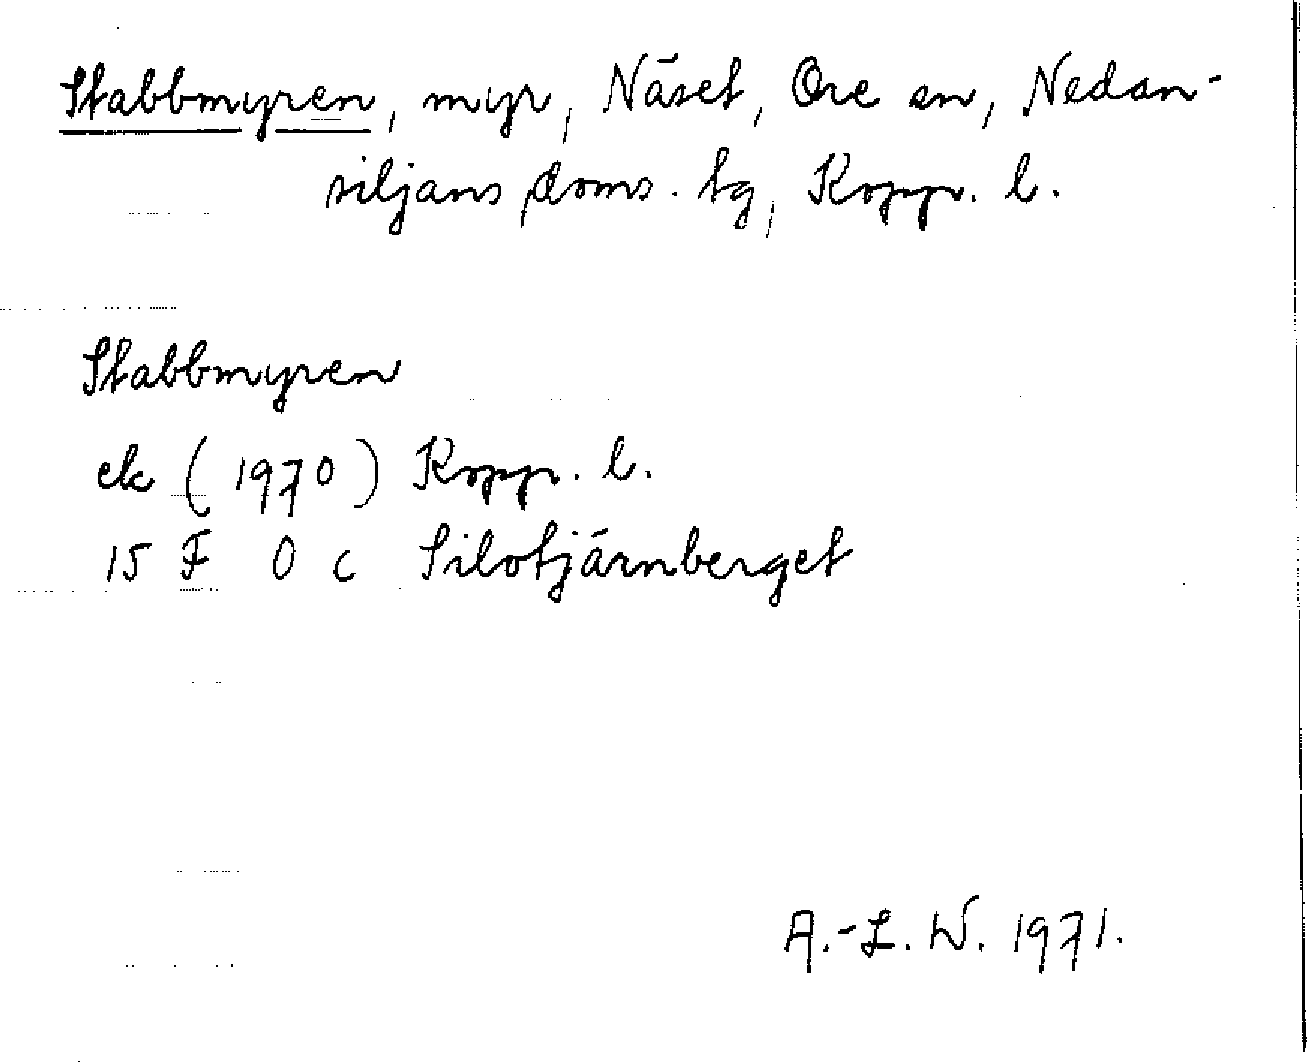 Stabbmyren, myr, Näset, Ore sn, Nedan-
siljans doms. tg, Kopp. l.
Stabbmyren
ek (1970) Kopp. l.
15 F 0 c Silotjärnberget
A.-L. W. 1971.